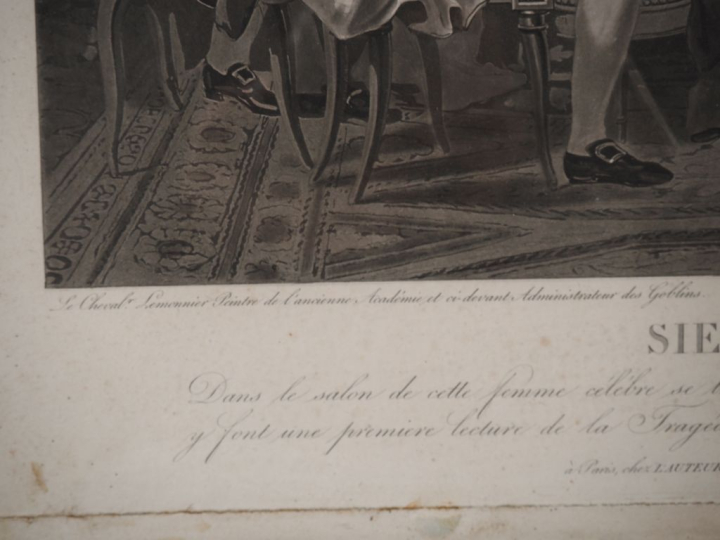 Le Cheval.r Lemonnier Peintre de l'ancienne Académie, et ci-devant Administrateur des Goblins.
SIE
Dans le salon de cette femme célèbre se
y font une premiere lecture de la Traged
à Paris, chez L'AUTEUR